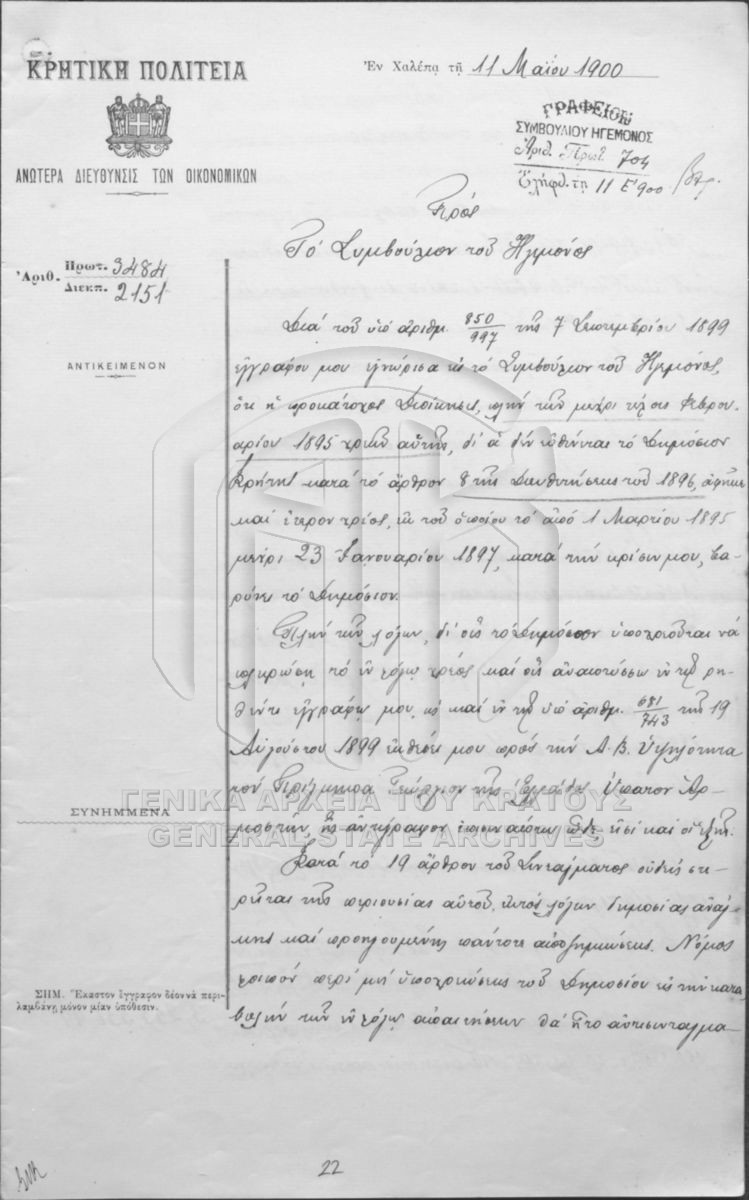 ΚΡΗΤΙΚΗ ΠΟΛΙΤΕΙΑ
ΑΝΩΤΕΡΑ ΔΙΕΥΘΥΝΣΙΣ ΤΩΝ ΟΙΚΟΝΟΜΙΚΩΝ
Ἐν Χαλέπᾳ τῇ 11 Μαΐου 1900
ΓΡΑΦΕΙΟΝ
ΣΥΜΒΟΥΛΙΟΥ ΗΓΕΜΟΝΟΣ
Ἀριθ. Πρωτ. 704
Ἐλήφθ. τῇ 11 Ε 900
Ἀριθ. Πρωτ. 3484
Διεκπ. 2151
ΑΝΤΙΚΕΙΜΕΝΟΝ
ΣΥΝΗΜΜΕΝΑ
ΣΗΜ. Ἕκαστον ἔγγραφον δέον νὰ περι-
λαμβάνῃ μόνον μίαν ὑπόθεσιν.
Πρὸς
Τὸ Συμβούλιον τοῦ Ἡγεμόνος
Διὰ τοῦ ὑπ' ἀριθμ. 850/997 τῆς 7 Σεπτεμβρίου 1899
ἐγγράφου μου ἐγνώρισα εἰς τὸ Συμβούλιον τοῦ Ἡγεμόνος,
ὅτι ἡ προκάτοχος Διοίκησις, πλὴν τῶν μέχρι τέλους Φεβρου-
αρίου 1895 χρεῶν αὐτῆς, δι' ἃ δὲν εὐθύνεται τὸ Δημόσιον
Κρήτης κατὰ τὸ ἄρθρον 8 τῆς Διευθετήσεως τοῦ 1896, ἀφῆκε
καὶ ἕτερον χρέος, ἐκ τοῦ ὁποίου τὸ ἀπὸ 1 Μαρτίου 1895
μέχρι 23 Ἰανουαρίου 1897, κατὰ τὴν κρίσιν μου, βα-
ρύνει τὸ Δημόσιον.
Πλὴν τῶν λόγων, δι' οὓς τὸ Δημόσιον ὑποχρεοῦται νὰ
πληρώσῃ τὸ ἐν λόγῳ χρέος καὶ οὓς ἀναπτύσσω ἐν τῷ ρη-
θέντι ἐγγράφῳ μου, ὡς καὶ ἐν τῇ ὑπ' ἀριθμ. 681/743 τῆς 19
Αὐγούστου 1899 ἐκθέσει μου πρὸς τὴν Α. Β. Ὑψηλότητα
τὸν Πρίγκηπα Γεώργιον τῆς Ἑλλάδος Ὕπατον Ἁρ-
μοστήν, ἧς ἀντίγραφον ἐπισυνάπτω ὧδε, εἰσὶ καὶ οἱ ἑξῆς.
Κατὰ τὸ 19 ἄρθρον τοῦ Συντάγματος οὐδεὶς στε-
ρεῖται τῆς περιουσίας αὐτοῦ, ἐκτὸς λόγων δημοσίας ἀνάγ-
κης καὶ προηγουμένης πάντοτε ἀποζημιώσεως. Νόμος
λοιπὸν περὶ μὴ ὑποχρεώσεως τοῦ Δημοσίου εἰς τὴν κατα-
βολὴν τῶν ἐν λόγῳ ἀπαιτήσεων θὰ ἦτο ἀντισυνταγμα-
22
ΓΕΝΙΚΑ ΑΡΧΕΙΑ ΤΟΥ ΚΡΑΤΟΥΣ
GENERAL STATE ARCHIVES